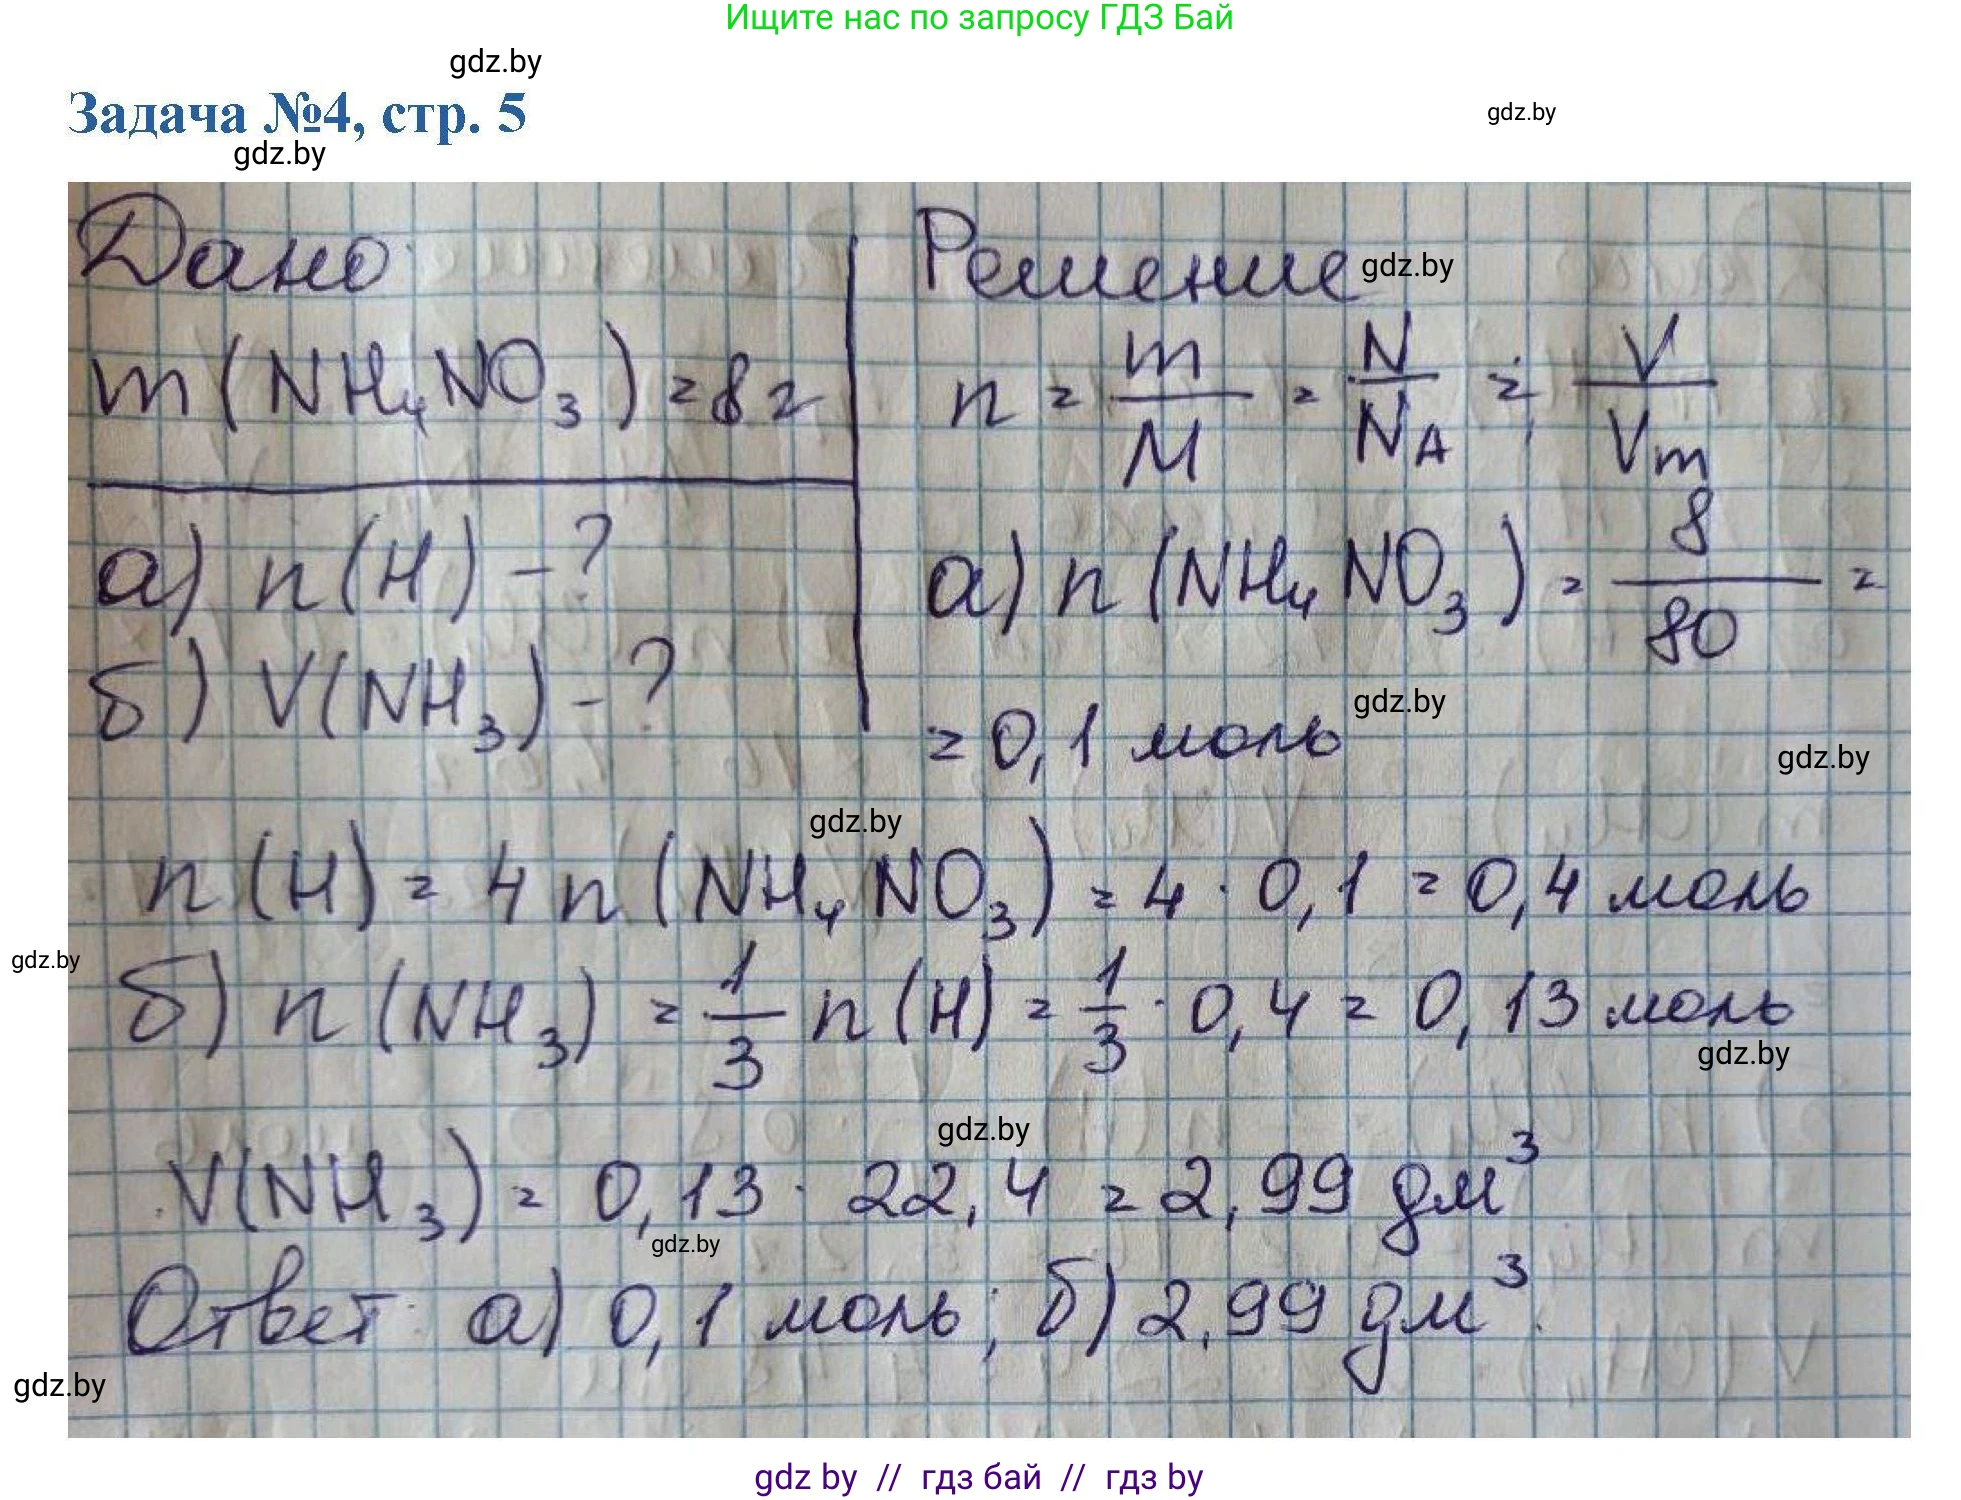 Ищите нас по запросу ГДЗ Бай
gdz.by
Задача №4, стр. 5
gdz.by
gdz.by
Дано:
m(NH₄NO₃) = 8 г
а) n(H) - ?
б) V(NH₃) - ?
Решение
gdz.by
n = m/M = N/N_A = V/Vm
а) n(NH₄NO₃) = 8/80 =
= 0,1 моль
gdz.by
gdz.by
gdz.by
n(H) = 4n(NH₄NO₃) = 4 · 0,1 = 0,4 моль
gdz.by
б) n(NH₃) = 1/3 n(H) = 1/3 · 0,4 = 0,13 моль
gdz.by
gdz.by
V(NH₃) = 0,13 · 22,4 = 2,99 дм³
gdz.by
Ответ: а) 0,1 моль; б) 2,99 дм³.
gdz.by
gdz by // гдз бай // гдз by